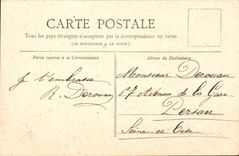 CARTE POSTALE
Tous les pays étrangers n'acceptent pas la correspondance au verso
(SE RENSEIGNER A LA POSTE)
Partie réservée à la Correspondance
Adresse du Destinataire
Je t'embrasse
R. Derouan
Monsieur Derouan
Avenue de la Gare
Persan
Seine et Oise